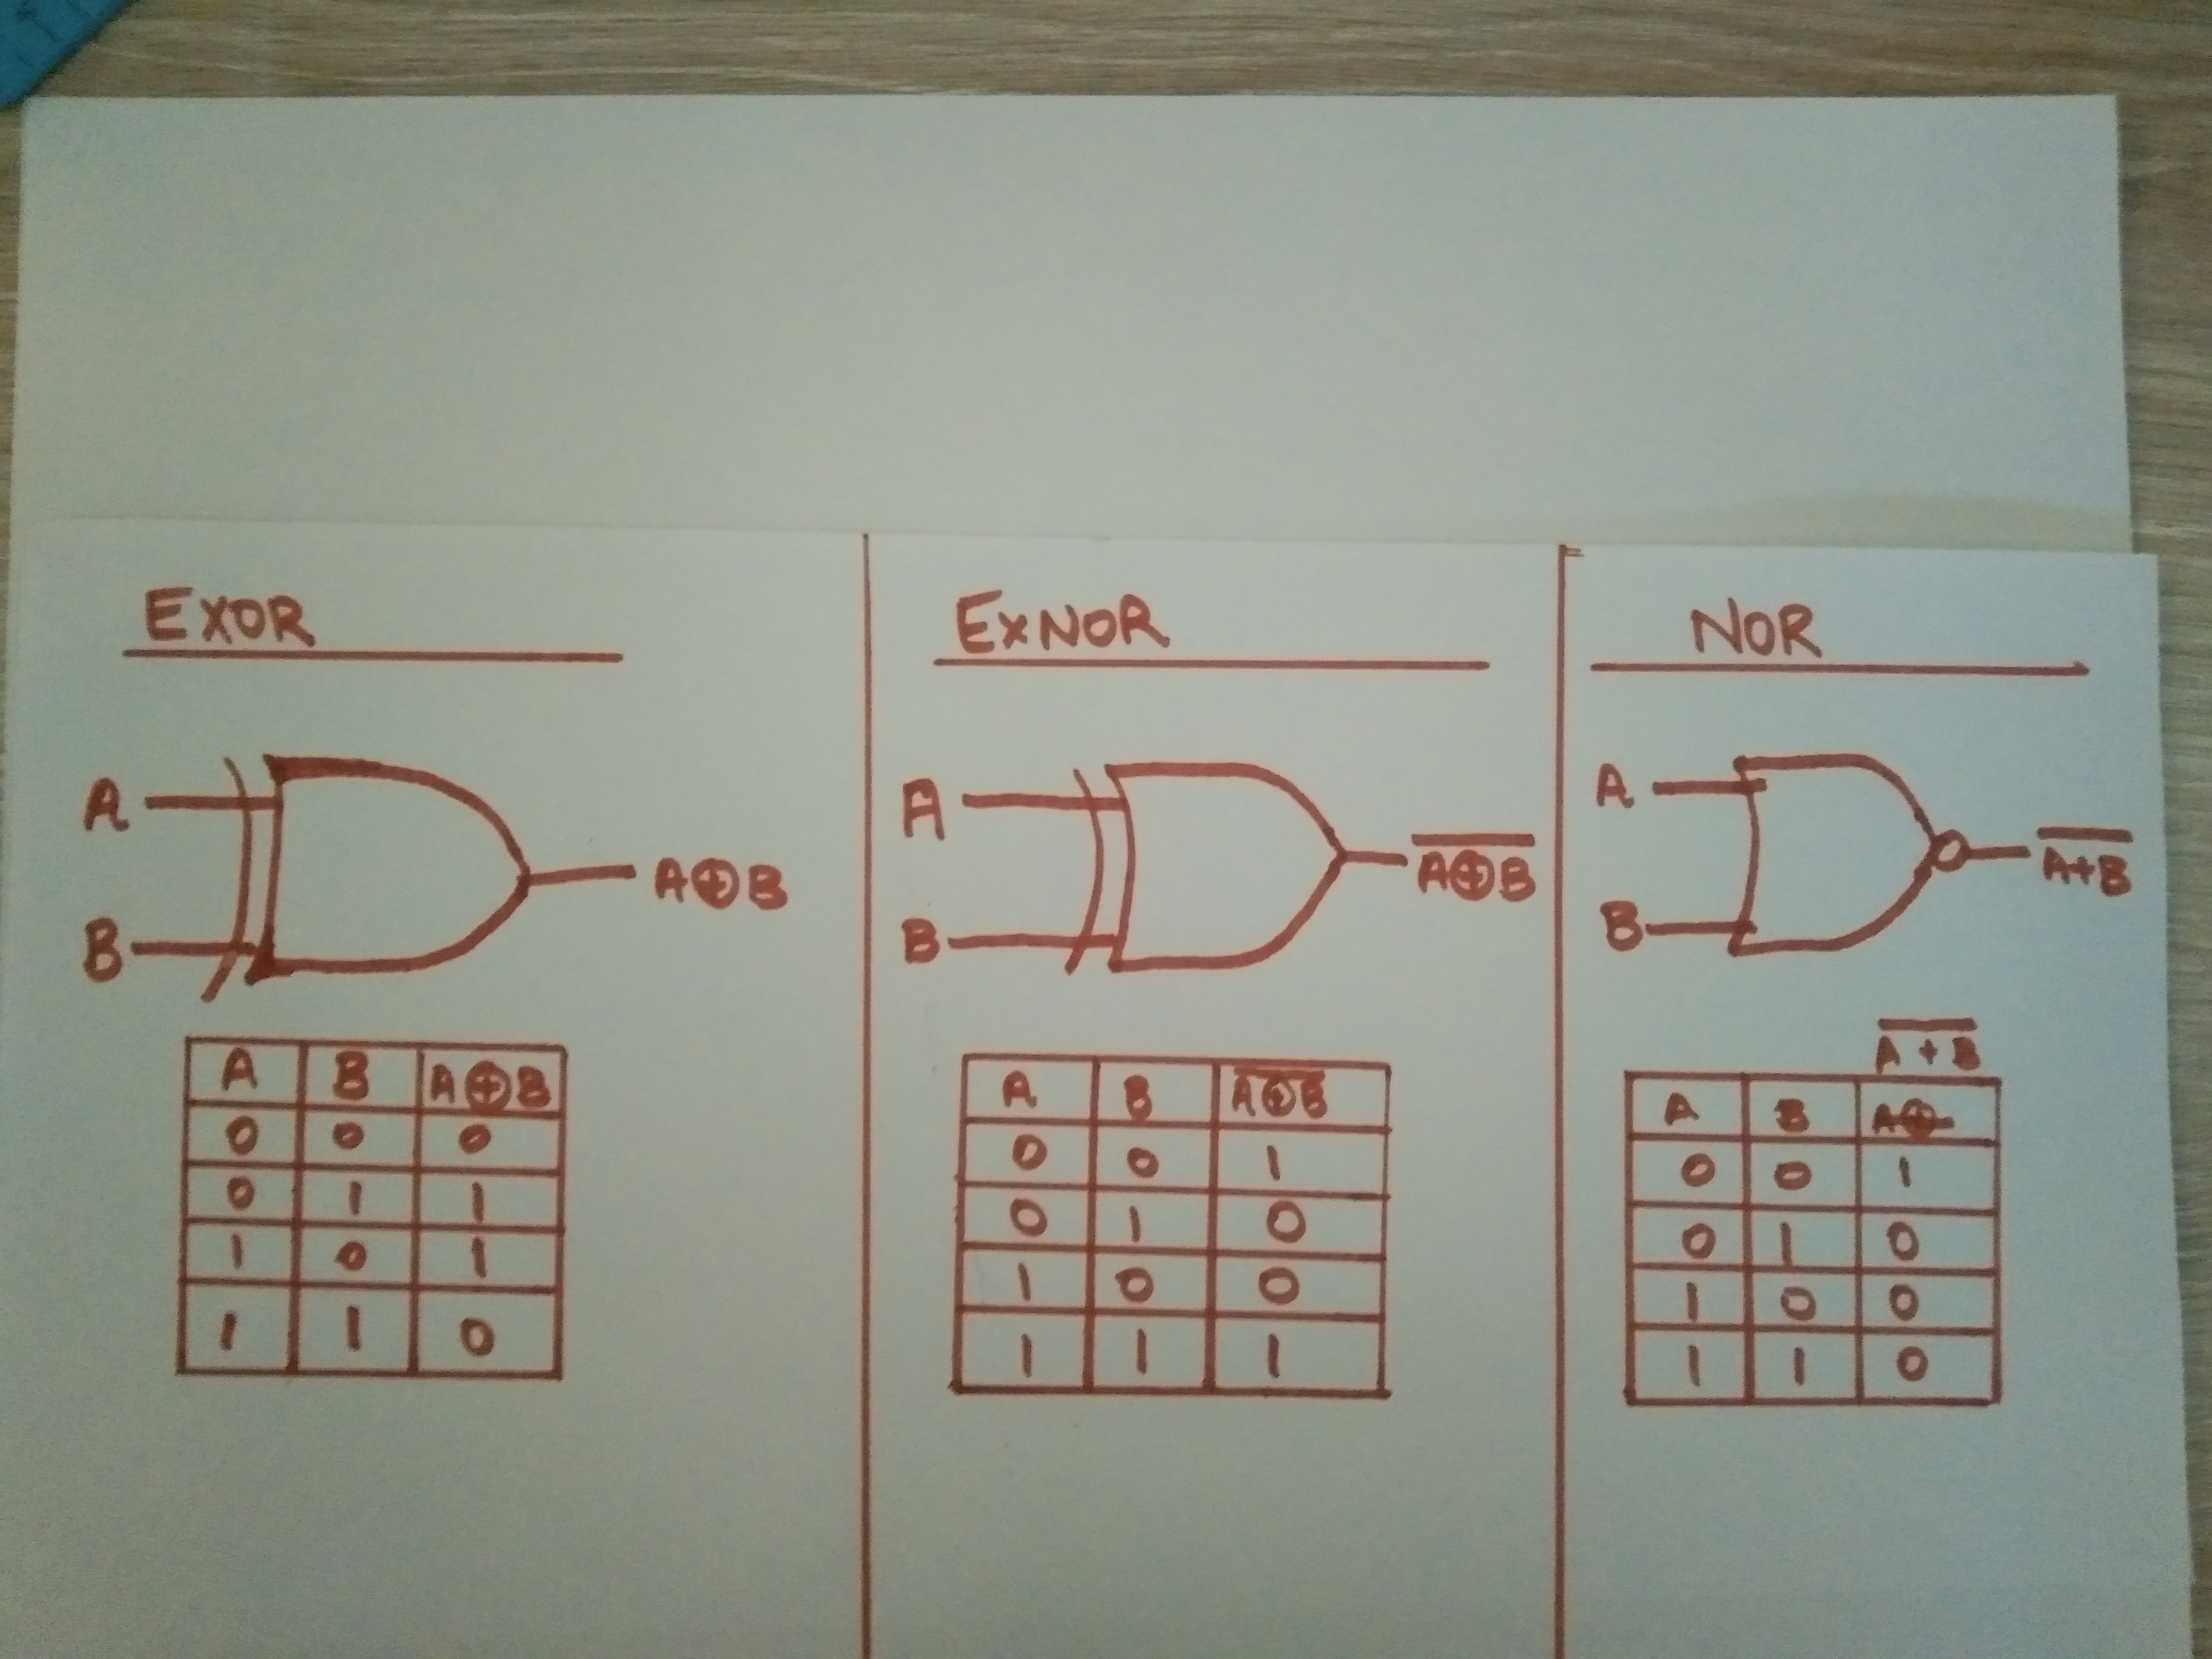 EXOR
A
B
A⊕B
A B A⊕B
0 0 0
0 1 1
1 0 1
1 1 0
ExNOR
A
B
A̅⊕̅B̅
A B A̅⊕̅B̅
0 0 1
0 1 0
1 0 0
1 1 1
NOR
A
B
A̅+̅B̅
A̅ +̅ B̅
A B A⊕
0 0 1
0 1 0
1 0 0
1 1 0